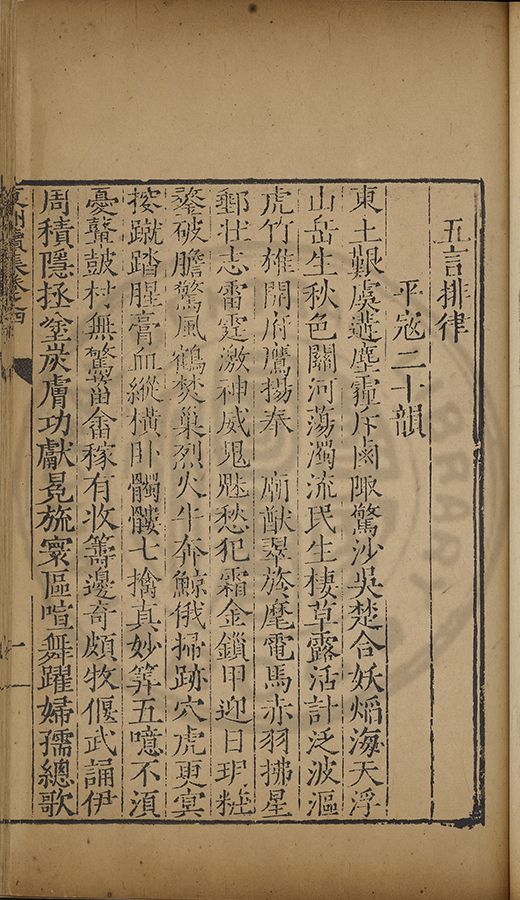 五言排律
平寇二十韻
東土艱虞遘塵霾斥鹵陬驚沙吳楚合妖熖海天浮
山岳生秋色關河蕩濁流民生棲草露活計泛波漚
虎竹雄開府鷹揚奉 廟猷翠旄麾電馬赤羽拂星
郵壯志雷霆激神威鬼魅愁犯霜金鎖甲迎日
鍪破膽驚風鶴焚巢烈火牛奔鯨俄掃跡穴虎更寘
按蹴踏腥膏血縱橫卧髑髏七擒真妙筭五噫不須
憂鼛鼓村無驚菑畬稼有收籌邊竒頗牧偃武誦伊
周積隱拯塗炭膚功獻冕旒寰區喧舞躍婦孺總歌
續集卷之四
一